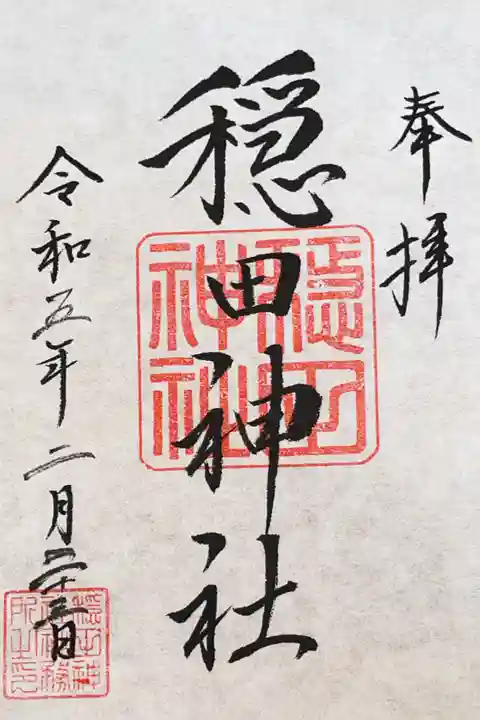 奉拝
穏田神社
穏田神社
令和五年二月二十三日
穏田神
社社務
所之印